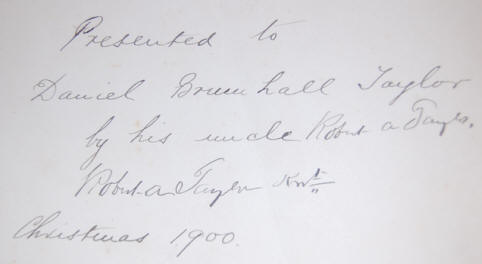 Presented to
Daniel Brumhall Taylor
by his uncle Robert a Taylor.
Robert a Taylor
Christmas 1900.